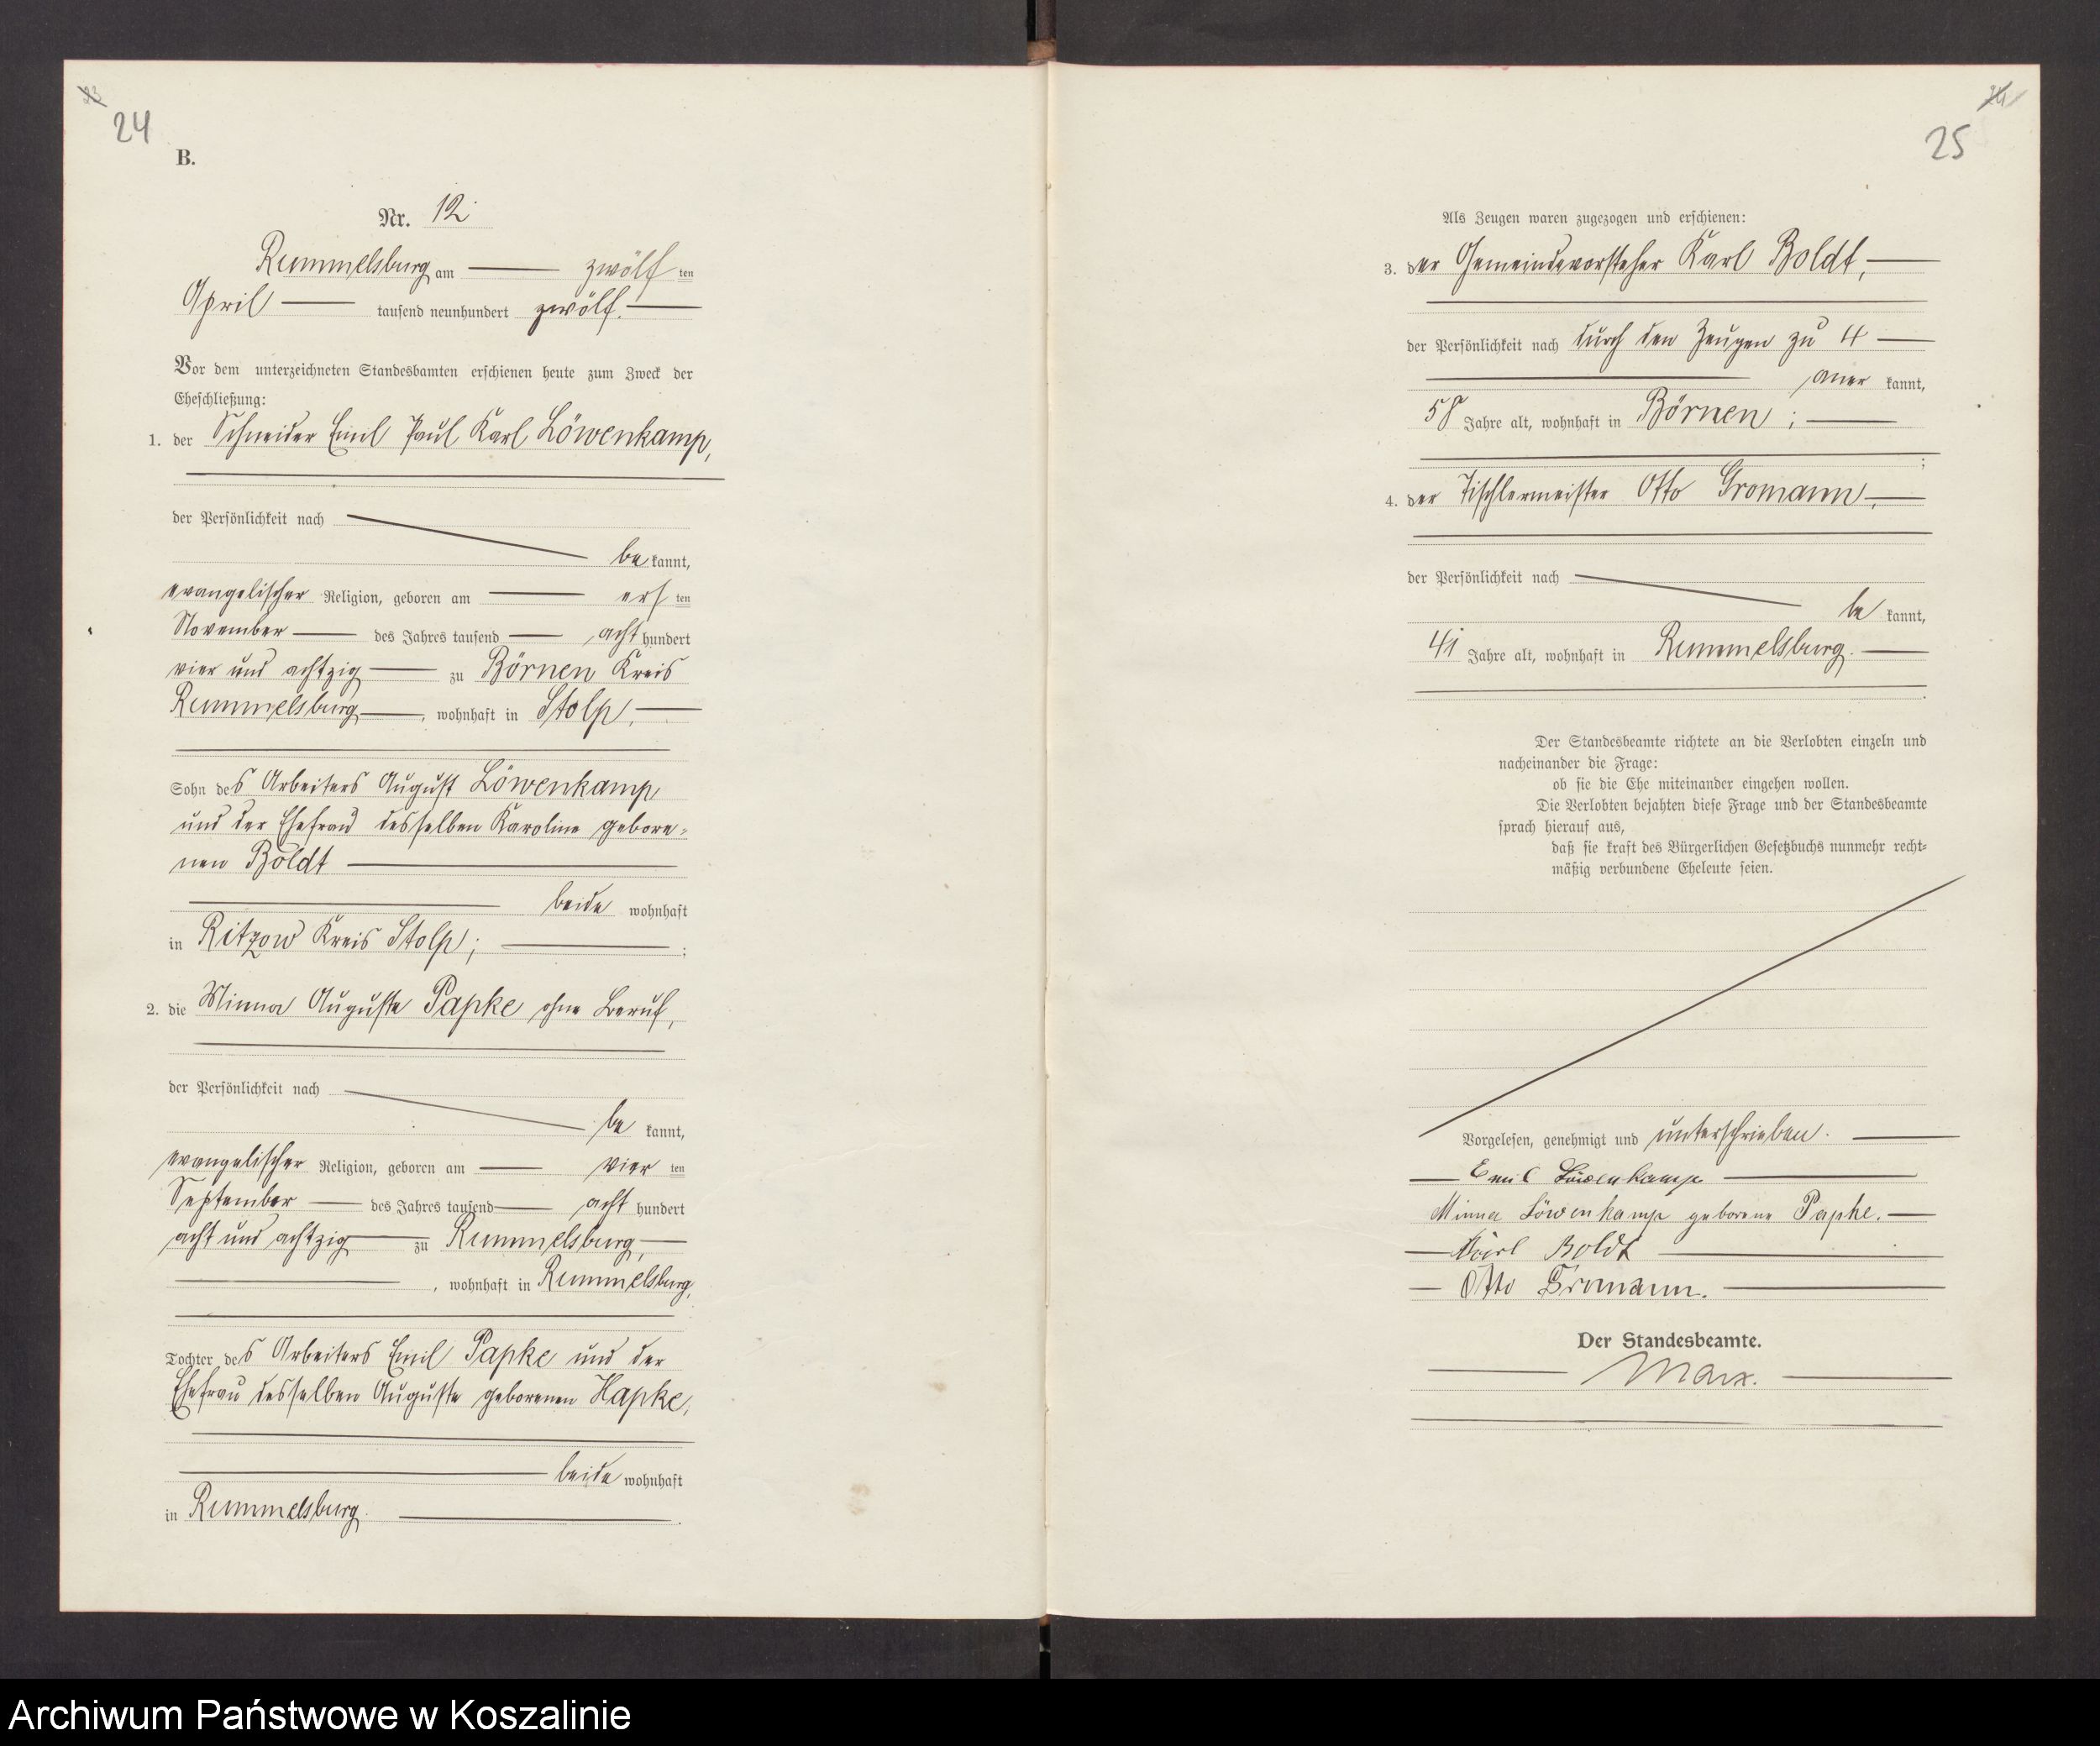 24
B.
Nr. 12
Rummelsburg am zwölf ten
April tausend neunhundert zwölf.
Vor dem unterzeichneten Standesbamten erschienen heute zum Zweck der
Eheschließung:
1. der Schneider Emil Paul Karl Löwenkamp,
der Persönlichkeit nach
be kannt,
evangelischer Religion, geboren am ers ten
November des Jahres tausend acht hundert
vier und achtzig zu Börnen Kreis
Rummelsburg, wohnhaft in Stolp,
Sohn des Arbeiters August Löwenkamp
und der Ehefrau desselben Karoline gebore-
nen Boldt
beide wohnhaft
in Ritzow Kreis Stolp; ;
2. die Minna Auguste Papke ohne Beruf,
der Persönlichkeit nach
be kannt,
evangelischer Religion, geboren am vier ten
September des Jahres tausend acht hundert
acht und achtzig zu Rummelsburg,
, wohnhaft in Rummelsburg,
Tochter des Arbeiters Emil Papke und der
Ehefrau desselben Auguste geborenen Hapke,
beide wohnhaft
in Rummelsburg.
25
Als Zeugen waren zugezogen und erschienen:
3. der Gemeindevorsteher Karl Boldt,
der Persönlichkeit nach durch den Zeugen zu 4
aner kannt,
58 Jahre alt, wohnhaft in Börnen;
;
4. der Tischlermeister Otto Gromann,
der Persönlichkeit nach
be kannt,
41 Jahre alt, wohnhaft in Rummelsburg.
Der Standesbeamte richtete an die Verlobten einzeln und
nacheinander die Frage:
ob sie die Ehe miteinander eingehen wollen.
Die Verlobten bejahten diese Frage und der Standesbeamte
sprach hierauf aus,
daß sie kraft des Bürgerlichen Gesetzbuchs nunmehr recht-
mäßig verbundene Eheleute seien.
Vorgelesen, genehmigt und unterschrieben.
Emil Löwenkamp
Minna Löwenkamp geborene Papke.
Karl Boldt
Otto Gromann.
Der Standesbeamte.
Marx.
Archiwum Państwowe w Koszalinie